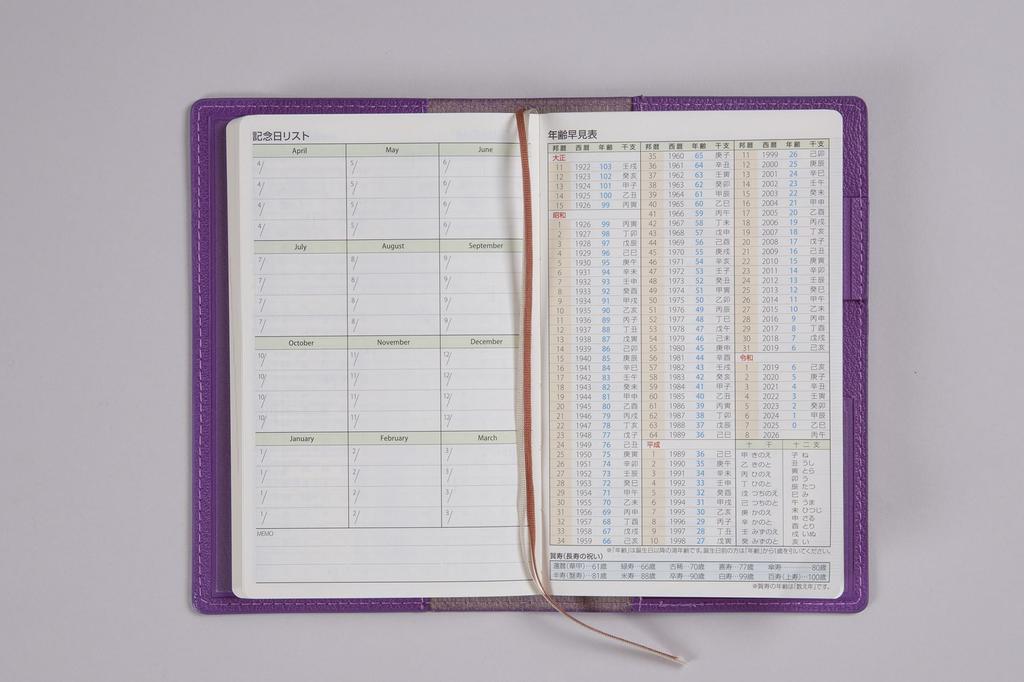 記念日リスト
April May June
4/ 5/ 6/
4/ 5/ 6/
4/ 5/ 6/
4/ 5/ 6/
July August September
7/ 8/ 9/
7/ 8/ 9/
7/ 8/ 9/
7/ 8/ 9/
October November December
10/ 11/ 12/
10/ 11/ 12/
10/ 11/ 12/
10/ 11/ 12/
January February March
1/ 2/ 3/
1/ 2/ 3/
1/ 2/ 3/
1/ 2/ 3/
MEMO
年齢早見表
邦暦 西暦 年齢 干支
大正
11 1922 103 壬戌
12 1923 102 癸亥
13 1924 101 甲子
14 1925 100 乙丑
15 1926 99 丙寅
昭和
1 1926 99 丙寅
2 1927 98 丁卯
3 1928 97 戊辰
4 1929 96 己巳
5 1930 95 庚午
6 1931 94 辛未
7 1932 93 壬申
8 1933 92 癸酉
9 1934 91 甲戌
10 1935 90 乙亥
11 1936 89 丙子
12 1937 88 丁丑
13 1938 87 戊寅
14 1939 86 己卯
15 1940 85 庚辰
16 1941 84 辛巳
17 1942 83 壬午
18 1943 82 癸未
19 1944 81 甲申
20 1945 80 乙酉
21 1946 79 丙戌
22 1947 78 丁亥
23 1948 77 戊子
24 1949 76 己丑
25 1950 75 庚寅
26 1951 74 辛卯
27 1952 73 壬辰
28 1953 72 癸巳
29 1954 71 甲午
30 1955 70 乙未
31 1956 69 丙申
32 1957 68 丁酉
33 1958 67 戊戌
34 1959 66 己亥
邦暦 西暦 年齢 干支
35 1960 65 庚子
36 1961 64 辛丑
37 1962 63 壬寅
38 1963 62 癸卯
39 1964 61 甲辰
40 1965 60 乙巳
41 1966 59 丙午
42 1967 58 丁未
43 1968 57 戊申
44 1969 56 己酉
45 1970 55 庚戌
46 1971 54 辛亥
47 1972 53 壬子
48 1973 52 癸丑
49 1974 51 甲寅
50 1975 50 乙卯
51 1976 49 丙辰
52 1977 48 丁巳
53 1978 47 戊午
54 1979 46 己未
55 1980 45 庚申
56 1981 44 辛酉
57 1982 43 壬戌
58 1983 42 癸亥
59 1984 41 甲子
60 1985 40 乙丑
61 1986 39 丙寅
62 1987 38 丁卯
63 1988 37 戊辰
64 1989 36 己巳
平成
1 1989 36 己巳
2 1990 35 庚午
3 1991 34 辛未
4 1992 33 壬申
5 1993 32 癸酉
6 1994 31 甲戌
7 1995 30 乙亥
8 1996 29 丙子
9 1997 28 丁丑
10 1998 27 戊寅
邦暦 西暦 年齢 干支
11 1999 26 己卯
12 2000 25 庚辰
13 2001 24 辛巳
14 2002 23 壬午
15 2003 22 癸未
16 2004 21 甲申
17 2005 20 乙酉
18 2006 19 丙戌
19 2007 18 丁亥
20 2008 17 戊子
21 2009 16 己丑
22 2010 15 庚寅
23 2011 14 辛卯
24 2012 13 壬辰
25 2013 12 癸巳
26 2014 11 甲午
27 2015 10 乙未
28 2016 9 丙申
29 2017 8 丁酉
30 2018 7 戊戌
31 2019 6 己亥
令和
1 2019 6 己亥
2 2020 5 庚子
3 2021 4 辛丑
4 2022 3 壬寅
5 2023 2 癸卯
6 2024 1 甲辰
7 2025 0 乙巳
8 2026 丙午
十干
甲 きのえ
乙 きのと
丙 ひのえ
丁 ひのと
戊 つちのえ
己 つちのと
庚 かのえ
辛 かのと
壬 みずのえ
癸 みずのと
十二支
子 ね
丑 うし
寅 とら
卯 う
辰 たつ
巳 み
午 うま
未 ひつじ
申 さる
酉 とり
戌 いぬ
亥 い
※「年齢」は誕生日以降の満年齢です。誕生日前の方は「年齢」から1歳を引いてください。
賀寿(長寿の祝い)
還暦(華甲)…61歳 緑寿…66歳 古稀…70歳 喜寿…77歳 傘寿 80歳
半寿(盤寿)…81歳 米寿…88歳 卒寿…90歳 白寿…99歳 百寿(上寿)…100歳
※賀寿の年齢は「数え年」です。